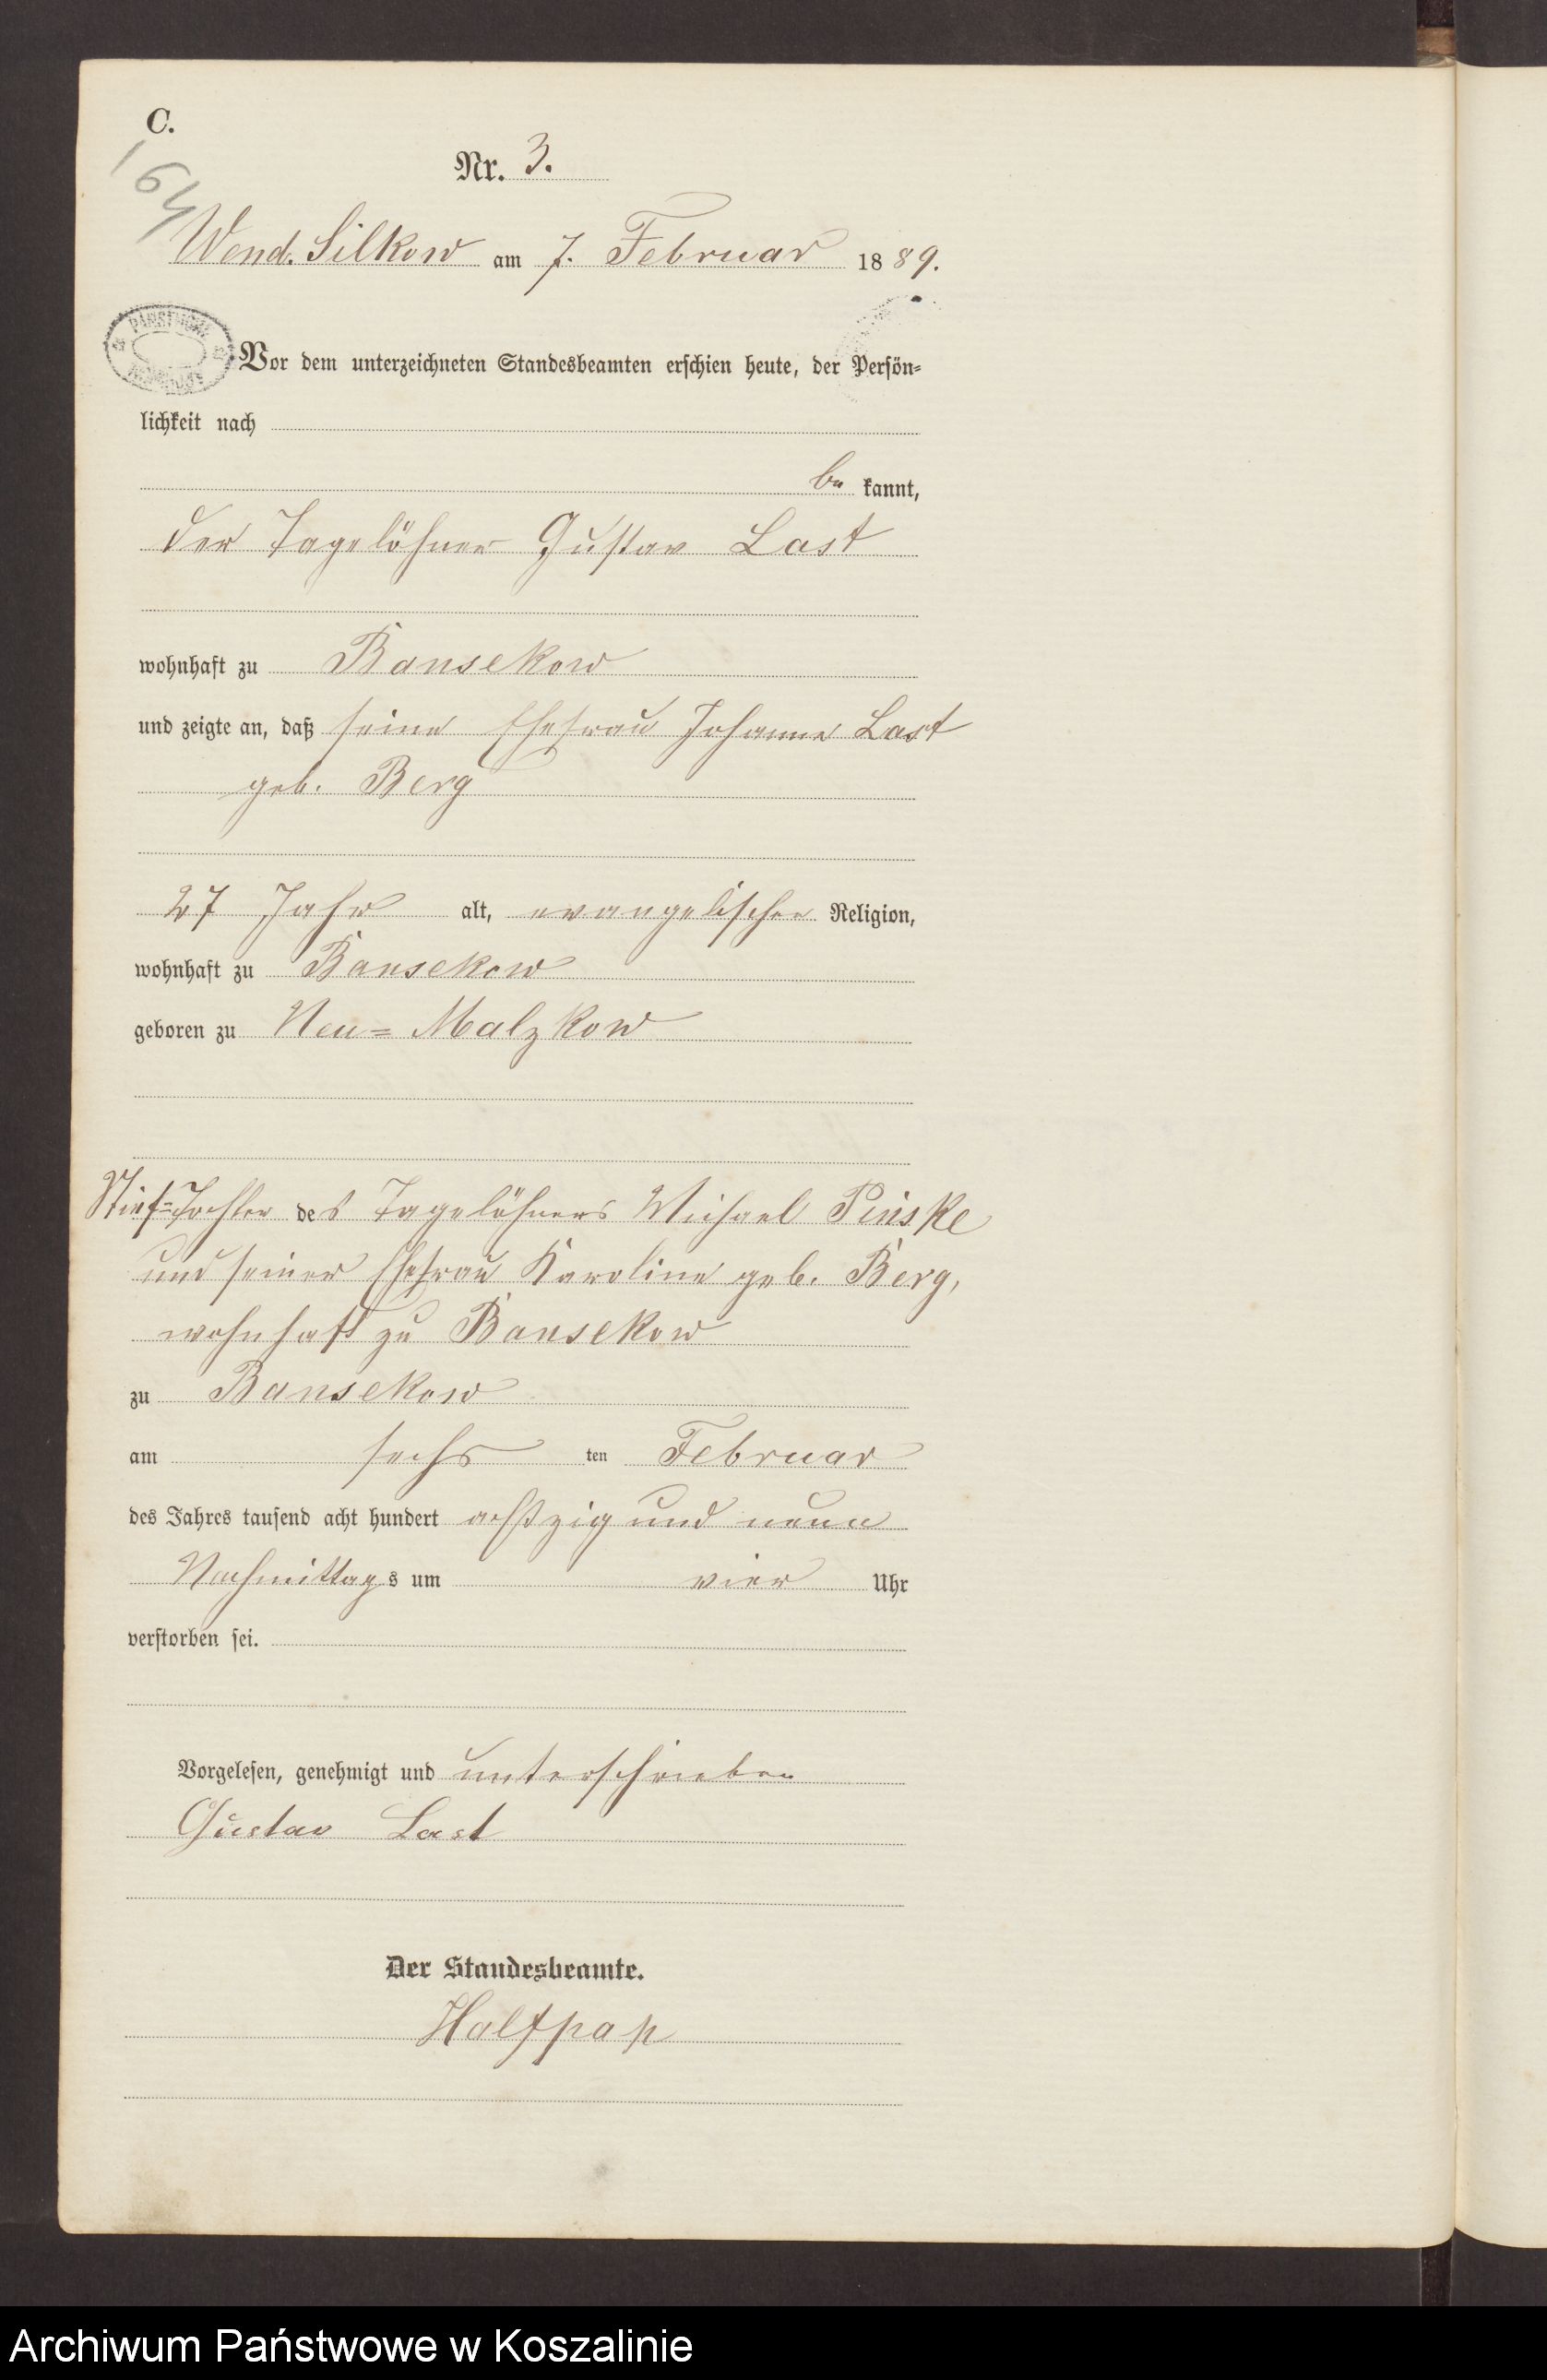 C.
164
Nr. 3.
Wend. Silkow am 7. Februar 1889.
Vor dem unterzeichneten Standesbeamten erschien heute, der Persön=
lichkeit nach
be kannt,
der Tagelöhner Gustav Last
wohnhaft zu Bansekow
und zeigte an, daß seine Ehefrau Johanne Last
geb. Berg
27 Jahr alt, evangelischer Religion,
wohnhaft zu Bansekow
geboren zu Neu=Malzkow
Stief=Tochter des Tagelöhners Michael Pinske
und seiner Ehefrau Karoline geb. Berg,
wohnhaft zu Bansekow
zu Bansekow
am sechs ten Februar
des Jahres tausend acht hundert achtzig und neun
Nachmittags um vier Uhr
verstorben sei.
Vorgelesen, genehmigt und unterschrieben
Gustav Last
Der Standesbeamte.
Halfpap
Archiwum Państwowe w Koszalinie